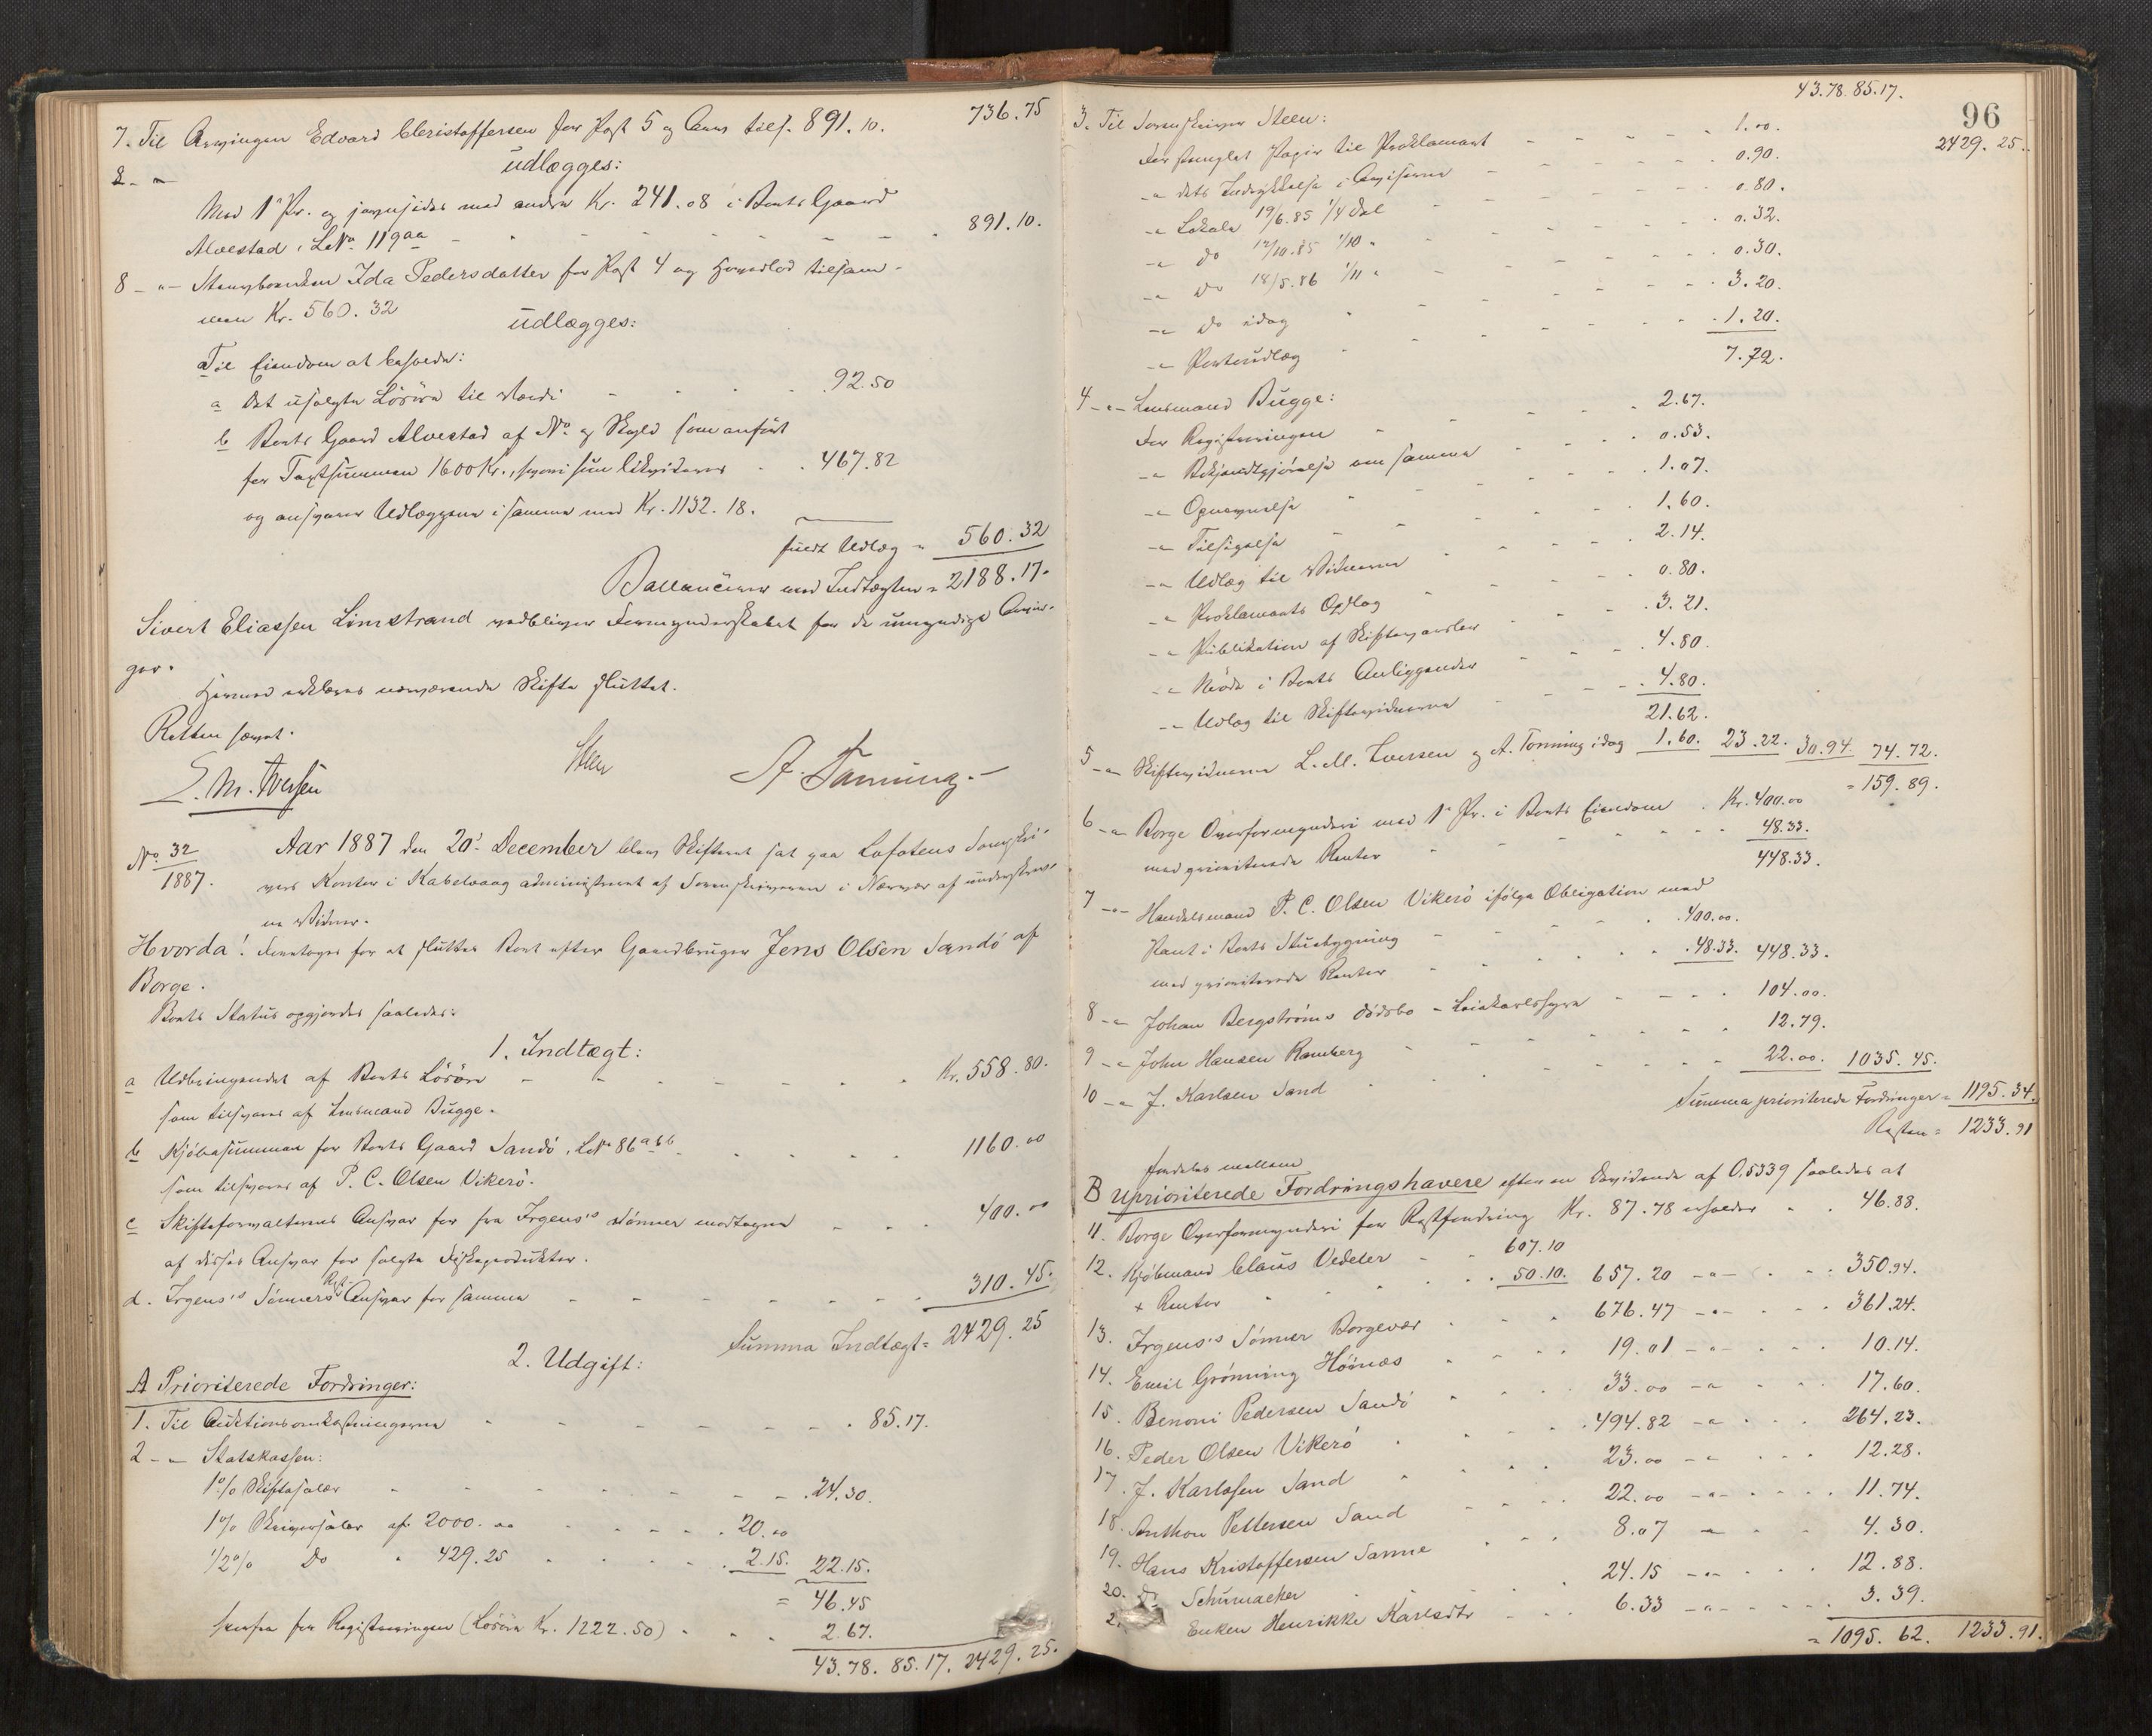 736.75
7. Til Arvingen Edvard Christoffersen for Post 5 og Arv tils. 891.10.
udlægges:
Med 1ste Pr. og jevnsides med andre Kr. 241.08 i Boets Gaard
Alvestad, L.No. 119aa - - - - - - 891.10.
8 - " - Stervboenken Ida Pedersdatter for Post 4 og Hovedlod tilsam-
men Kr. 560.32
udlægges:
Til Eiendom at besidde:
a Det usolgte Løsøre til Værdi - - - 92.50
b Boets Gaard Alvestad af No. og Skyld som anført
for Taxtsummen 1600 Kr., hvori hun likviderer - - 467.82
og ansvarer Udlæggene i samme med Kr. 1132.18.
fuldt Udlæg = 560.32
Ballancerer med Indtægten = 2188.17.
Sivert Eliassen Limstrand vedbliver Formynderskabet for de umyndige Arvin-
ger.
Hermed erklæres nærværende Skifte sluttet.
Retten hævet.
L. M. Iversen Steen A. Tönning.-
No. 32/1887. Aar 1887 den 20de December blev Skifteret sat paa Lofotens Sorenskri-
vers Kontor i Kabelvaag administreret af Sorenskriveren i Nærvær af underskrev-
ne Vidner.
Hvorda! Foretoges for at slutte Boet efter Gaardbruger Jens Olsen Sandö af
Borge.
Boets Status opgjordes saaledes:
1. Indtægt:
a Udbringendet af Boets Løsøre - - - - - - Kr. 558.80.
som tilsvares af Lensmand Bugge.
b Kjøbesummen for Boets Gaard Sandö, L.No. 86a bb - - - - 1160.00
som tilsvares af P. C. Olsen Vikerö.
c Skifteforvalterens Ansvar for fra Irgens's Sönner modtagne - - - 400.00
af disses Ansvar for solgte Fiskeprodukter.
d. Irgens's Sönners Rest-Ansvar for samme - - - - - - 310.45.
Summa Indtægt = 2429.25
2. Udgift:
A Prioriterede Fordringer:
1. Til Auktionsomkostningerne - - - - - - 85.17.
2 - " - Statskassen:
1% Skiftesalær - - - - - - 24.30.
1% Skriversalær af 2000.00 - - - - 20.00
1/2% Do " 429.25 - - - - 2.15. 22.15.
= 46.45
herfra for Registreringen (Løsøre Kr. 1222.50) - - - 2.67.
43.78. 85.17. 2429.25.
43.78. 85.17.
96
2429.25.
3. Til Sorenskriver Steen:
For stemplet Papir til Proklamaet - - - - 1.00.
- " dets Indrykkelse i Aviserne - - - - 0.90.
- " Lokale 19/6.85 1/4 Del - - - - 0.80.
- " do 12/10.85 1/10 " - - - - 0.32.
- " do 18/5.86 1/11 " - - - - 0.30.
- " do idag - - - - 3.20.
- " Portoudlæg - - - - 1.20.
7.72.
4 - " - Lensmand Bugge:
For Registreringen - - - - 2.67.
- " Bekjendtgjörelse om samme - - - 0.53.
- " Opnævnelse - - - - 1.07.
- " Tilsigelse - - - - 1.60.
- " Udlæg til Vidnerne - - - 2.14.
- " Proklamaets Opslag - - - 0.80.
- " Publikation af Skiftevarsler - - - 3.21.
- " Möde i Boets Anliggender - - - 4.80.
- " Udlæg til Skiftevidnerne - - - 4.80.
21.62.
5 - " - Skiftevidnerne L. M. Iversen og A. Tönning idag 1.60. 23.22. 30.94. 74.72.
= 159.89.
6 - " Borge Overformynderi med 1ste Pr. i Boets Eiendom . Kr. 400.00
med prioriterede Renter - - - - - 48.33.
448.33.
7 - " - Handelsmand P. C. Olsen Vikerö ifölge Obligation med
Pant i Boets Stuebygning - - - - 400.00.
med prioriterede Renter - - - - 48.33. 448.33.
8 - " Johan Bergströms Dödsbo - Leiekarlshyre - - - 104.00.
9 - " John Hansen Ramberg - - - - 12.79.
10 - " J. Karlsen Sand - - - - 22.00. 1035.45.
Summa prioriterede Fordringer = 1195.34.
Resten = 1233.91
fordeles mellem
B uprioriterede Fordringshavere efter en Dividende af 0,5339 saaledes at
11. Borge Overformynderi for Restfordring Kr. 87.78 erholder - - 46.88.
12. Kjöbmand Claus Vedeler - - 607.10
+ Renter - - - 50.10. 657.20 - " - - - 350.94.
13. Irgens's Sönner Borgevær - - - 676.47 - " - - - 361.24.
14. Emil Grönning Höinæs - - - 19.01 - " - - - 10.14.
15. Benoni Pedersen Sandö - - - 33.00 - " - - 17.60.
16. Peder Olsen Vikerö - - - 494.82 - " - - - 264.23.
17. J. Karlssen Sand - - - 23.00 - " - - - 12.28.
18. Anthon Pettersen Sand - - - 22.00 - " - - - 11.74.
19. Hans Kristoffersen Sanne - - - 8.07 - " - - 4.30.
20. Dr Schumacker - - - 24.15 - " - - - 12.88.
2. Enken Henrikke Karlsdtr - - - 6.33 - " - - - 3.39.
= 1095.62. 1233.91.